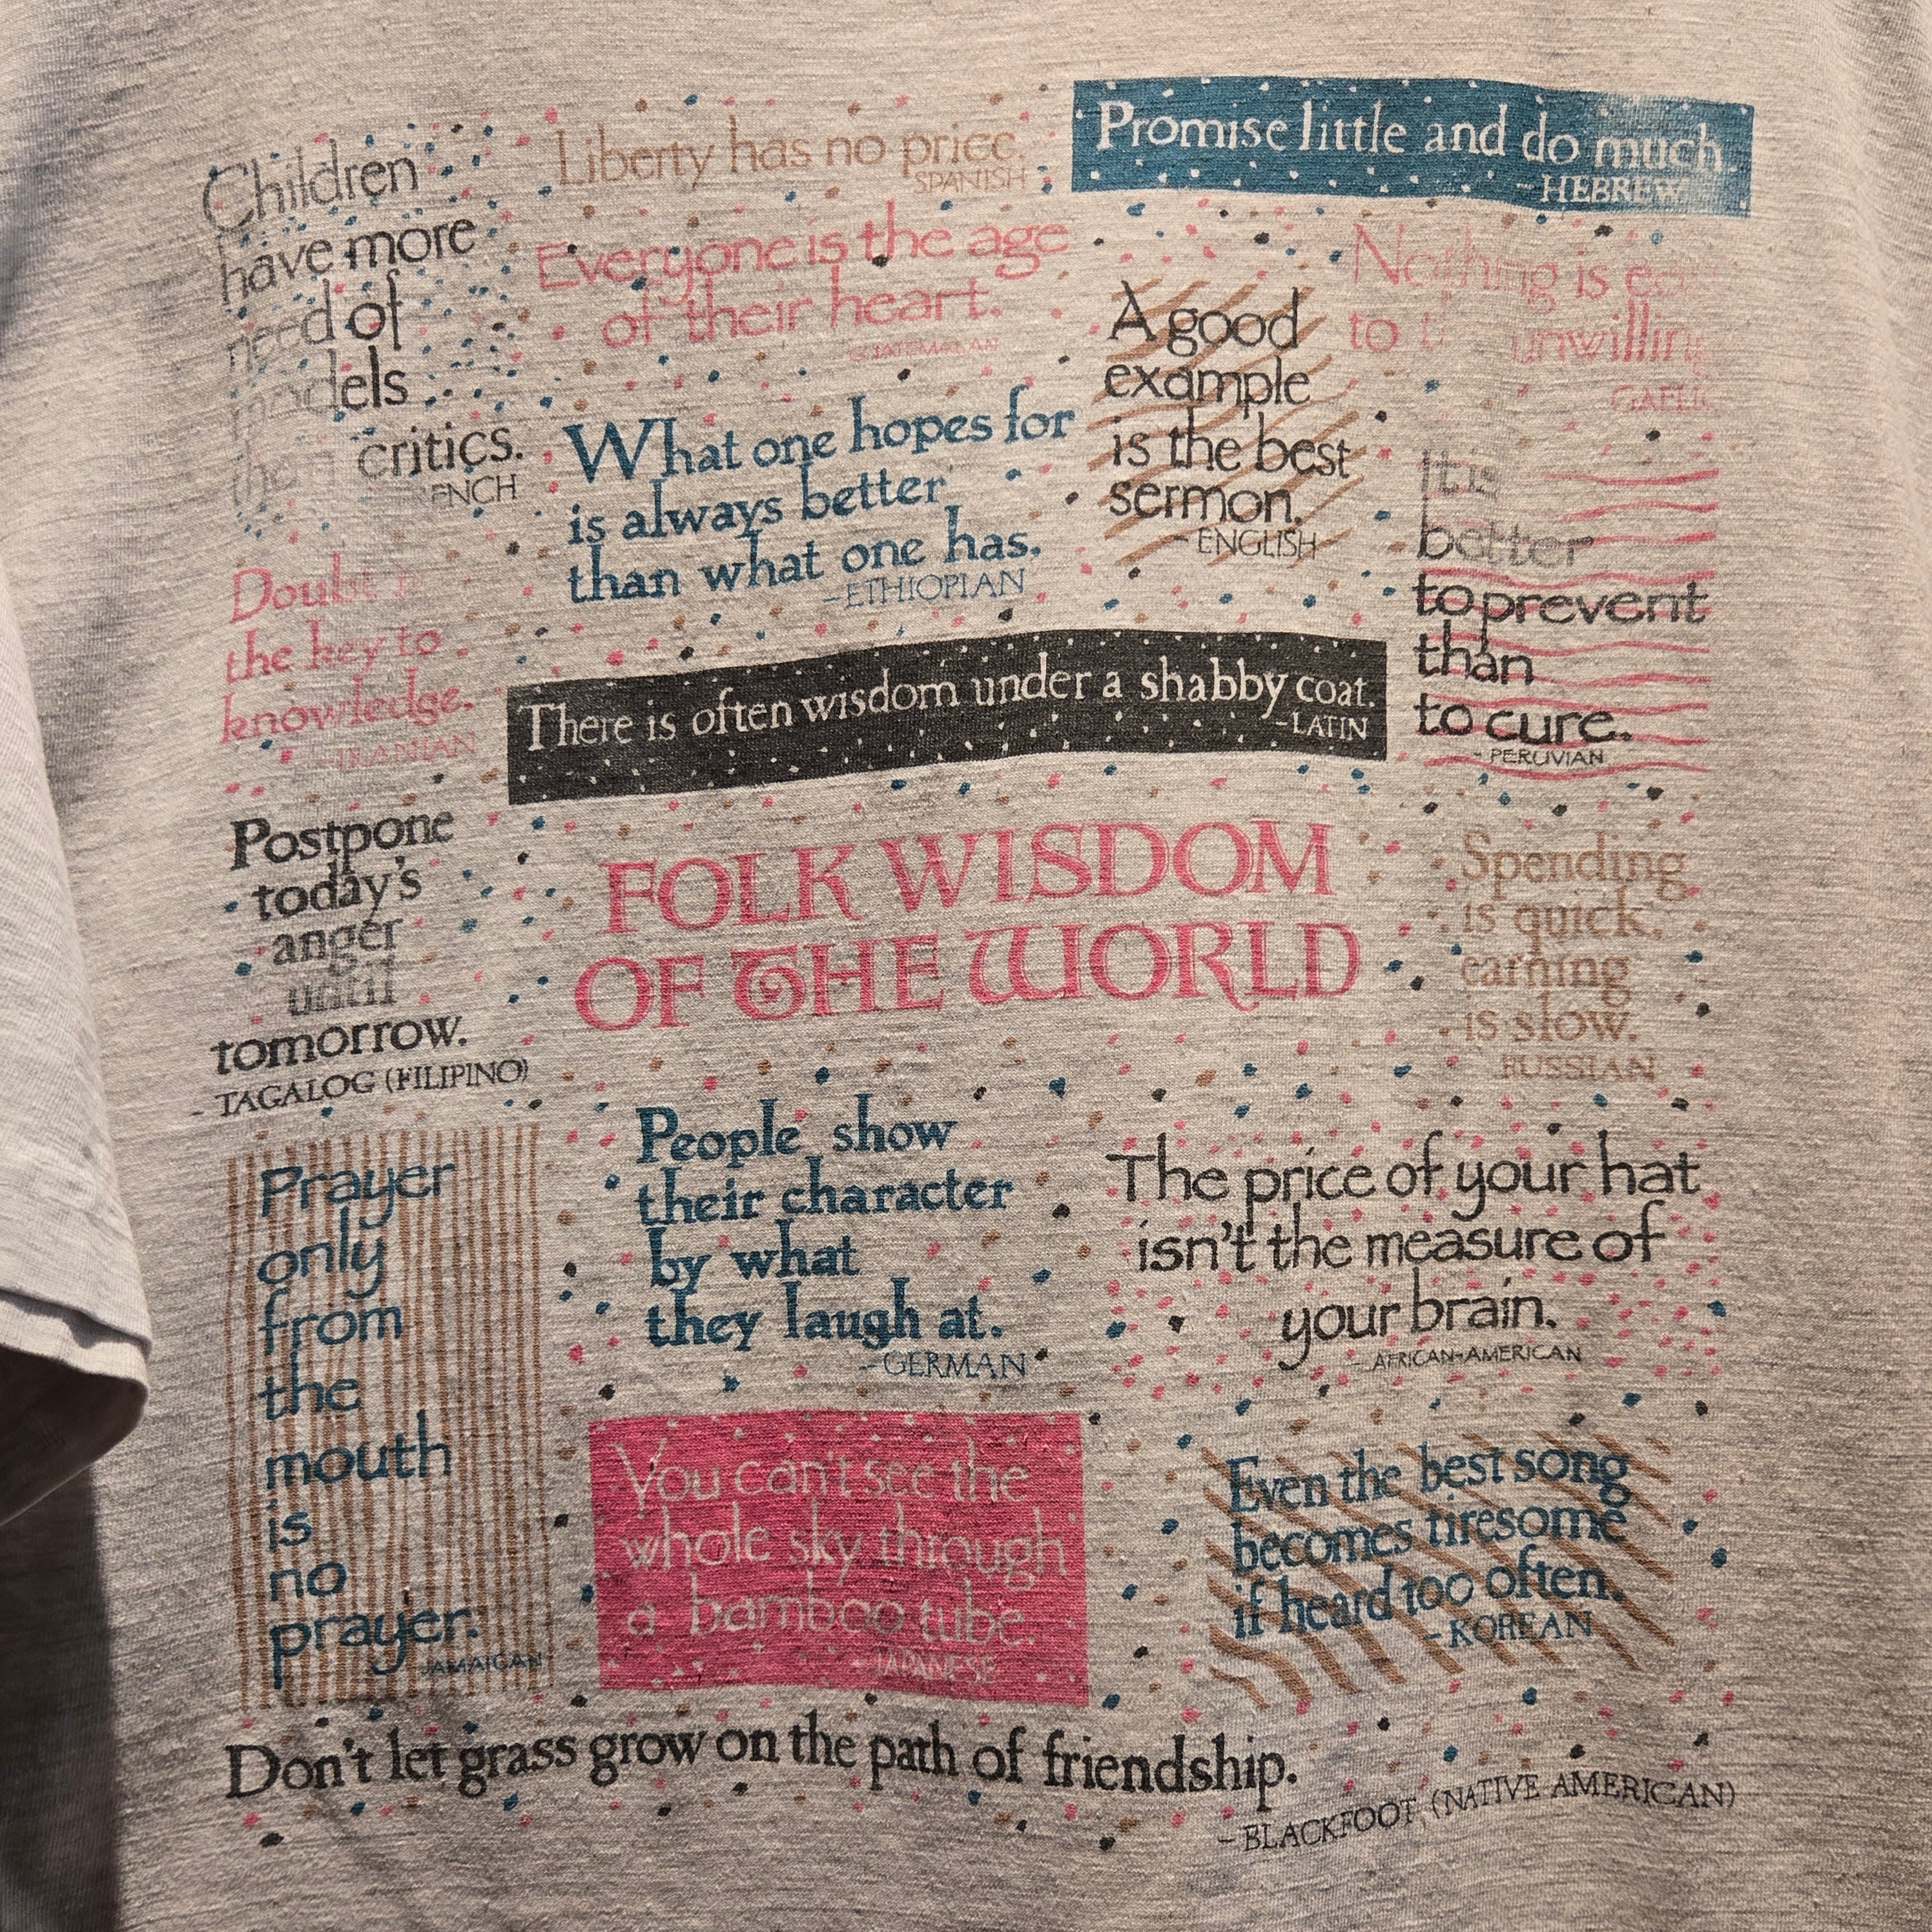 Children
have more
need of
models
than critics.
FRENCH
Liberty has no price.
SPANISH
Promise little and do much.
-HEBREW
Everyone is the age
of their heart.
GUATEMALAN
A good
example
is the best
sermon.
- ENGLISH
Nothing is
to unwilling
GAELIC
What one hopes for
is always better
than what one has.
-ETHIOPIAN
It is
better
to prevent
than
to cure.
- PERUVIAN
Doubt
the key to
knowledge.
-IRANIAN
There is often wisdom under a shabby coat.
-LATIN
Postpone
today's
anger
until
tomorrow.
- TAGALOG (FILIPINO)
FOLK WISDOM
OF THE WORLD
Spending
is quick,
earning
is slow.
RUSSIAN
Prayer
only
from
the
mouth
is
no
prayer.
-JAMAICAN
People show
their character
by what
they laugh at.
-GERMAN
The price of your hat
isn't the measure of
your brain.
- AFRICAN-AMERICAN
You can't see the
whole sky through
a bamboo tube.
-JAPANESE
Even the best song
becomes tiresome
if heard too often.
-KOREAN
Don't let grass grow on the path of friendship.
- BLACKFOOT (NATIVE AMERICAN)